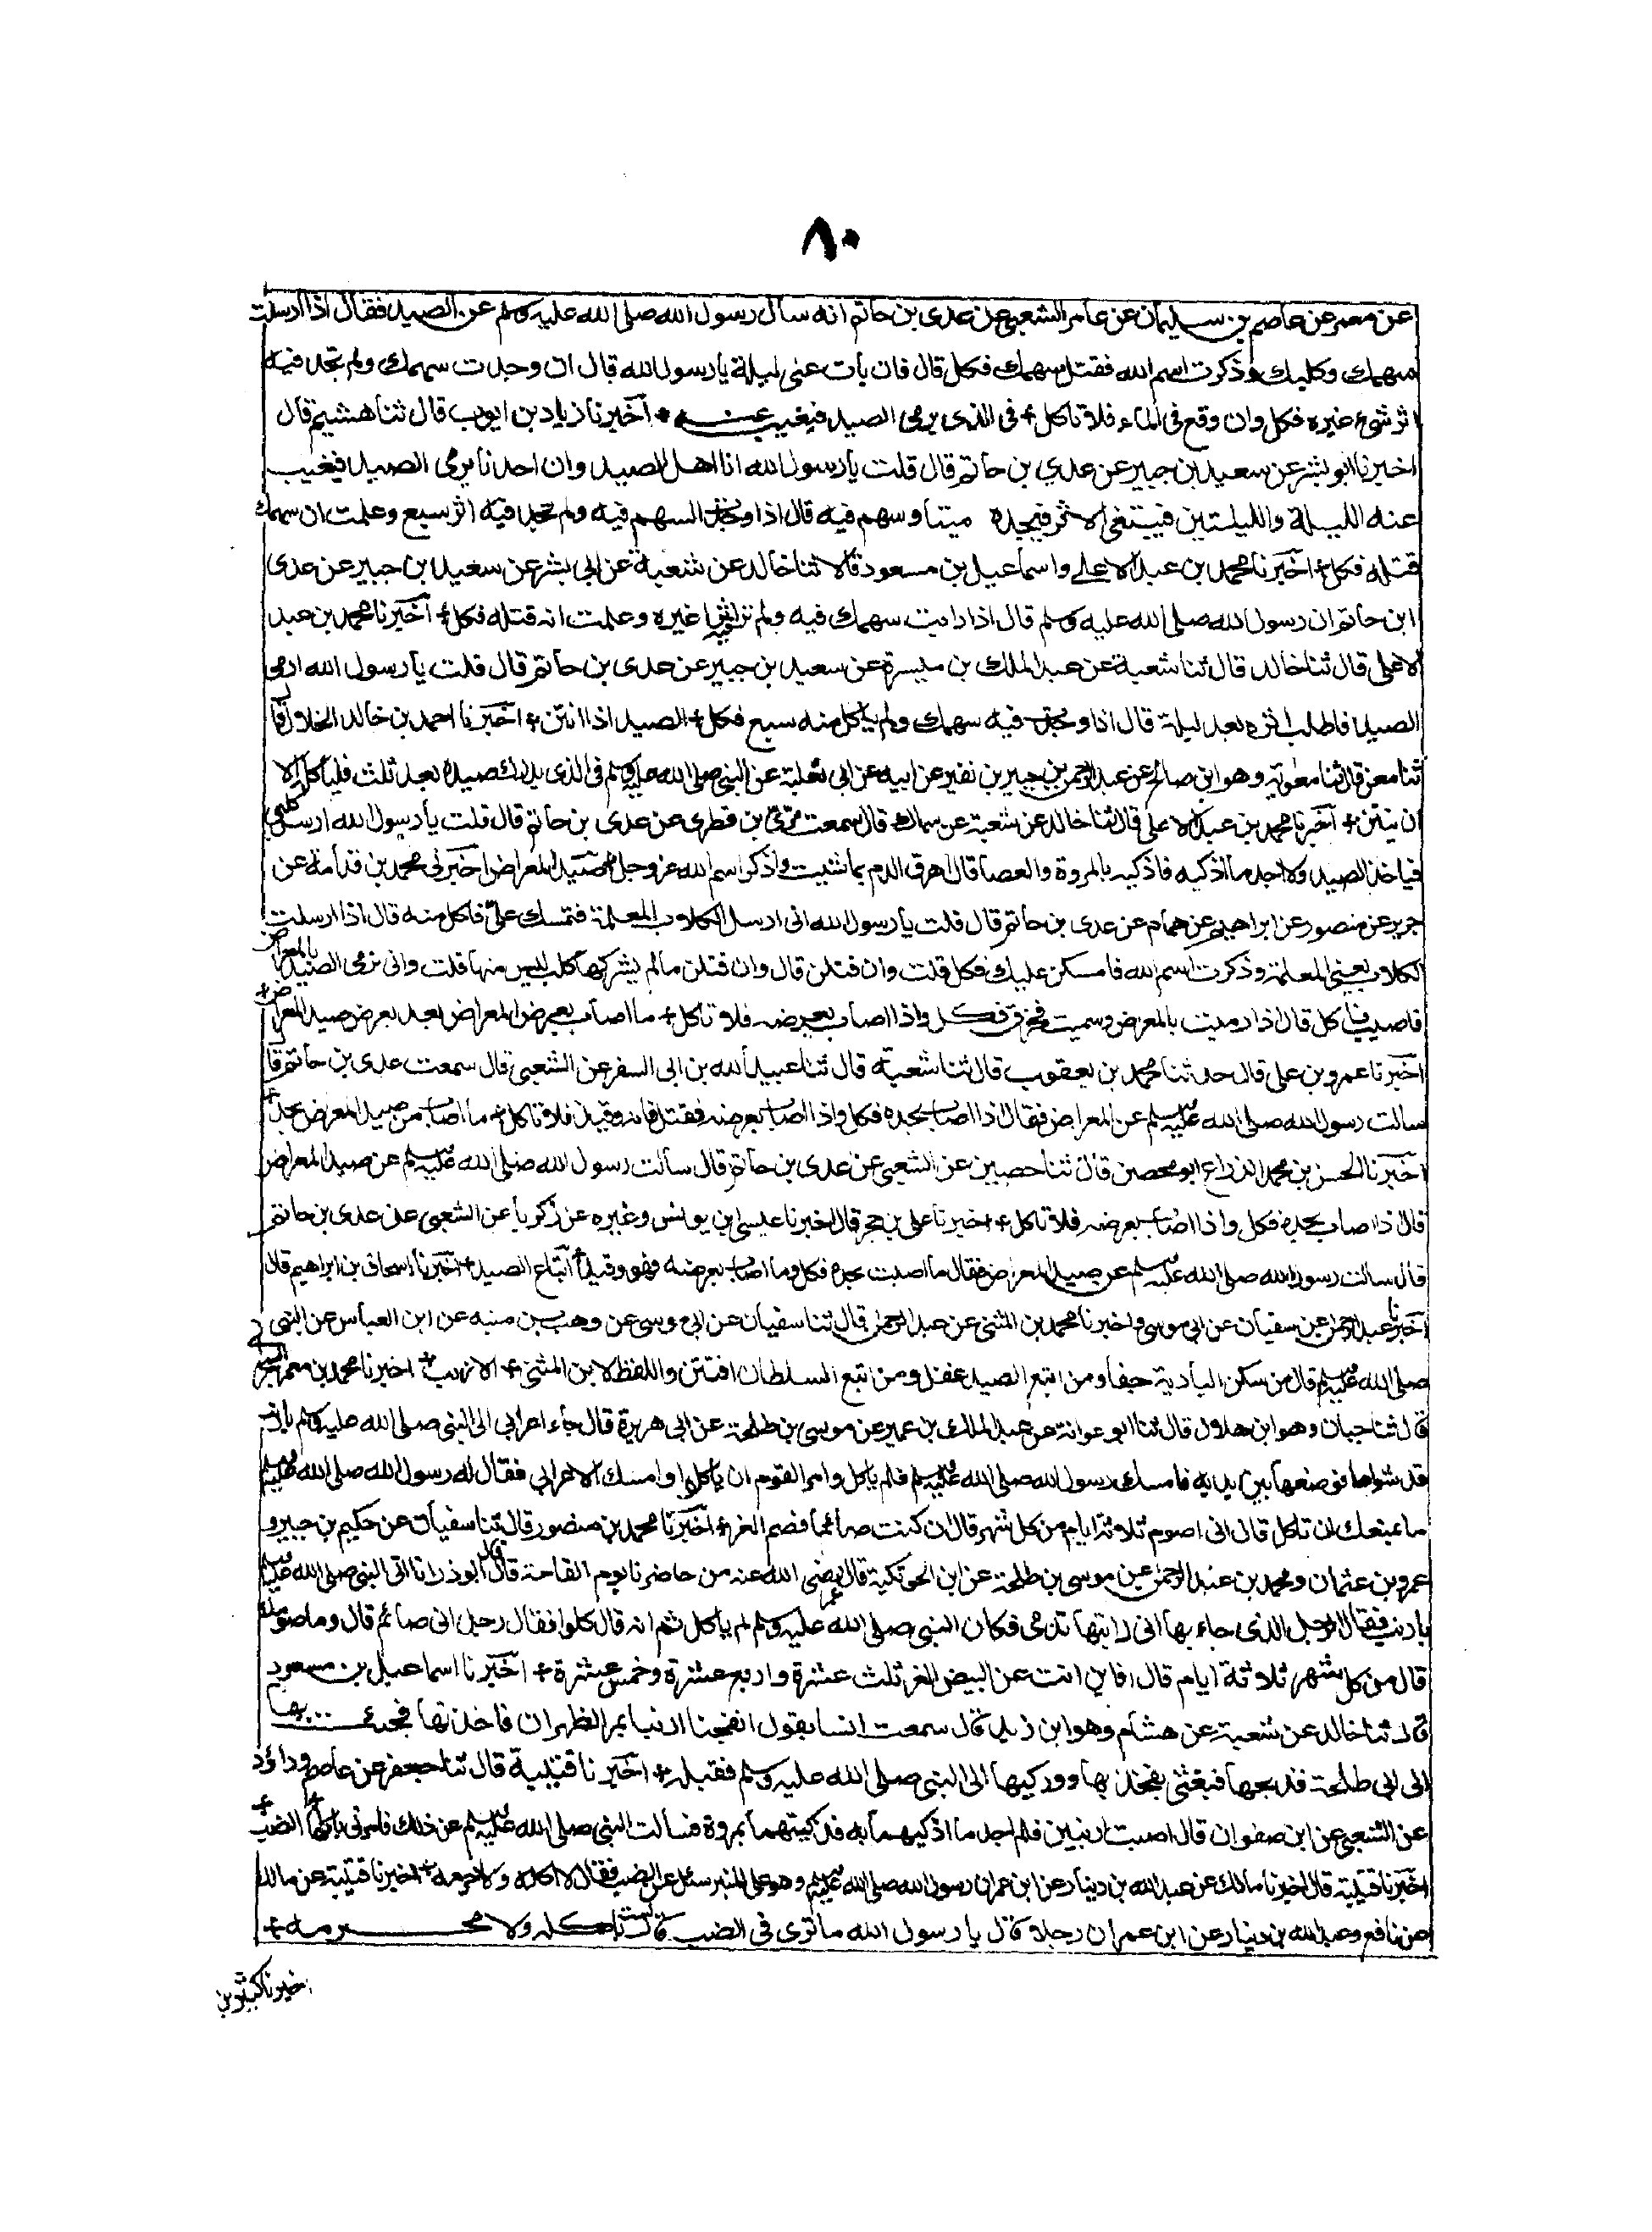 ٨٠
عن معمر عن عاصم بن سليمان عن عامر الشعبي عن عدى بن حاتم انه سال رسول الله صلى الله عليه وسلم عن الصيد فقال اذا ارسلت
سهمك وكلبك وذكرت اسم الله فقتل سهمك فكل قال فان بات عنى ليلة يا رسول الله قال ان وجدت سهمك ولم تجد فيه
اثر شئ غيره فكل وان وقع فى الماء فلا تاكل + فى الذى يرمى الصيد فيغيب عنه + اخبرنا زياد بن ايوب قال ثنا هشيم قال
اخبرنا ابو بشر عن سعيد بن جبير عن عدي بن حاتم قال قلت يا رسول الله انا اهل الصيد وان احدنا يرمى الصيد فيغيب
عنه الليلة والليلتين فيبتغى الاثر فيجده ميتا وسهم فيه قال اذا وجدت السهم فيه ولم تجد فيه اثر سبع وعلمت ان سهمك
قتله فكل + اخبرنا محمد بن عبد الاعلى واسماعيل بن مسعود قالا ثنا خالد عن شعبة عن ابى بشر عن سعيد بن جبير عن عدى
ابن حاتم ان رسول الله صلى الله عليه وسلم قال اذا رايت سهمك فيه ولم تر فيه اثرا غيره وعلمت انه قتله فكل + اخبرنا محمد بن عبد
الاعلى قال ثنا خالد قال ثنا شعبة عن عبد الملك بن ميسرة عن سعيد بن جبير عن عدى بن حاتم قال قلت يا رسول الله ارمى
الصيد فاطلب اثره بعد ليلة قال اذا وجدت فيه سهمك ولم ياكل منه سبع فكل + الصيد اذا انتن + اخبرنا احمد بن خالد الخلال قال
ثنا معن قال ثنا معوية وهو ابن صالح عن عبد الرحمن بن جبير بن نفير عن ابيه عن ابى ثعلبة عن النبى صلى الله عليه وسلم فى الذى يدرك صيده بعد ثلث فلياكل الا
ان ينتن + اخبرنا محمد بن عبد الاعلى قال ثنا خالد عن شعبة عن سماك قال سمعت مرى بن قطرى عن عدى بن حاتم قال قلت يا رسول الله ارسل كلبى
فياخذ الصيد ولا اجد ما اذكيه فاذكيه بالمروة والعصا قال اهرق الدم بما شئت واذكر اسم الله عز وجل + صيد المعراض اخبرنى محمد بن قدامة عن
جرير عن منصور عن ابراهيم عن همام عن عدى بن حاتم قال قلت يا رسول الله انى ارسل الكلاب المعلمة فتمسك على فاكل منه قال اذا ارسلت
الكلاب يعنى المعلمة وذكرت اسم الله فامسكن عليك فكل قلت وان قتلن قال وان قتلن ما لم يشركها كلب ليس منها قلت وانى نرمى الصيد بالمعراض
فاصيب فاكل قال اذا رميت بالمعرض وسميت فخزق فكل واذا اصاب بعرضه فلا تاكل + ما اصاب بعرض المعراض بعد بعرض صيد المعراض +
اخبرنا عمرو بن على قال حدثنا محمد بن يعقوب قال ثنا شعبة قال ثنا عبيد الله بن ابى السفر عن الشعبى قال سمعت عدى بن حاتم قال
سالت رسول الله صلى الله عليه وسلم عن المعراض فقال اذا اصاب بحده فكل واذا اصاب بعرضه فقتل فانه وقيذ فلا تاكل + ما اصاب من صيد المعراض بحده +
اخبرنا الحسن بن محمد الذراع ابو محصين قال ثنا حصين عن الشعبى عن عدى بن حاتم قال سالت رسول الله صلى الله عليه وسلم عن صيد المعراض
قال اذا اصاب بحده فكل واذا اصاب بعرضه فلا تاكل ++ اخبرنا على بن حجر قال اخبرنا عيسى بن يونس وغيره عن زكريا عن الشعبى عن عدى بن حاتم
قال سالت رسول الله صلى الله عليه وسلم عن صيد المعراض فقال ما اصبت بحده فكل وما اصاب بعرضه فهو وقيذ + اتباع الصيد + اخبرنا اسحاق بن ابراهيم قال
اخبرنا عبد الرحمن عن سفيان عن ابى موسى واخبرنا محمد بن المثنى عن عبد الرحمن قال ثنا سفيان عن ابى موسى عن وهب بن منبه عن ابن العباس عن النبى
صلى الله عليه وسلم قال من سكن البادية جفا ومن اتبع الصيد غفل ومن اتبع السلطان افتتن واللفظ لابن المثنى + الارنب + اخبرنا محمد بن معمر البحرانى
قال ثنا حبان وهو ابن هلال قال ثنا ابو عوانة عن عبد الملك بن عمير عن موسى بن طلحة عن ابى هريرة قال جاء اعرابى الى النبى صلى الله عليه وسلم بارنب
قد شواها فوضعها بين يديه فامسك رسول الله صلى الله عليه وسلم فلم ياكل وامر القوم ان ياكلوا وامسك الاعرابى فقال له رسول الله صلى الله عليه وسلم
ما يمنعك ان تاكل قال انى اصوم ثلاثة ايام من كل شهر قال ان كنت صائما فصم الغر + اخبرنا محمد بن منصور قال ثنا سفيان عن حكيم بن جبير و
عمرو بن عثمان ومحمد بن عبد الرحمن عن موسى بن طلحة عن ابن الحوتكية قال قال عمر رضى الله عنه من حاضرنا يوم القاحة قال قال ابو ذر انا اتى النبى صلى الله عليه وسلم
بارنب فقال الرجل الذى جاء بها انى رايتها تدمى فكان النبى صلى الله عليه وسلم لم ياكل ثم انه قال كلوا فقال رجل انى صائم قال وما صومك
قال من كل شهر ثلاثة ايام قال فاين انت عن البيض الغر ثلث عشرة واربع عشرة وخمس عشرة + اخبرنا اسماعيل بن مسعود
قال ثنا خالد عن شعبة عن هشام وهو ابن زيد قال سمعت انسا يقول انفجنا ارنبا بمر الظهران فاخذتها فجئت بها
الى ابى طلحة فذبحها فبعثنى بفخذيها ووركيها الى النبى صلى الله عليه وسلم فقبله + اخبرنا قتيبة قال ثنا حفص عن عاصم وداؤد
عن الشعبى عن ابن صفوان قال اصبت ارنبين فلم اجد ما اذكيهما به فذكيتهما بمروة فسالت النبى صلى الله عليه وسلم عن ذلك فامرنى باكلهما + الضب +
اخبرنا قتيبة قال اخبرنا مالك عن عبد الله بن دينار عن ابن عمر ان رسول الله صلى الله عليه وسلم وهو على المنبر سئل عن الضب فقال لا اكله ولا احرمه + اخبرنا قتيبة عن مالك
عن نافع وعبد الله بن دينار عن ابن عمر ان رجلا قال يا رسول الله ما ترى فى الضب قال لست باكله ولا محرمه +
اخبرنا كثير بن